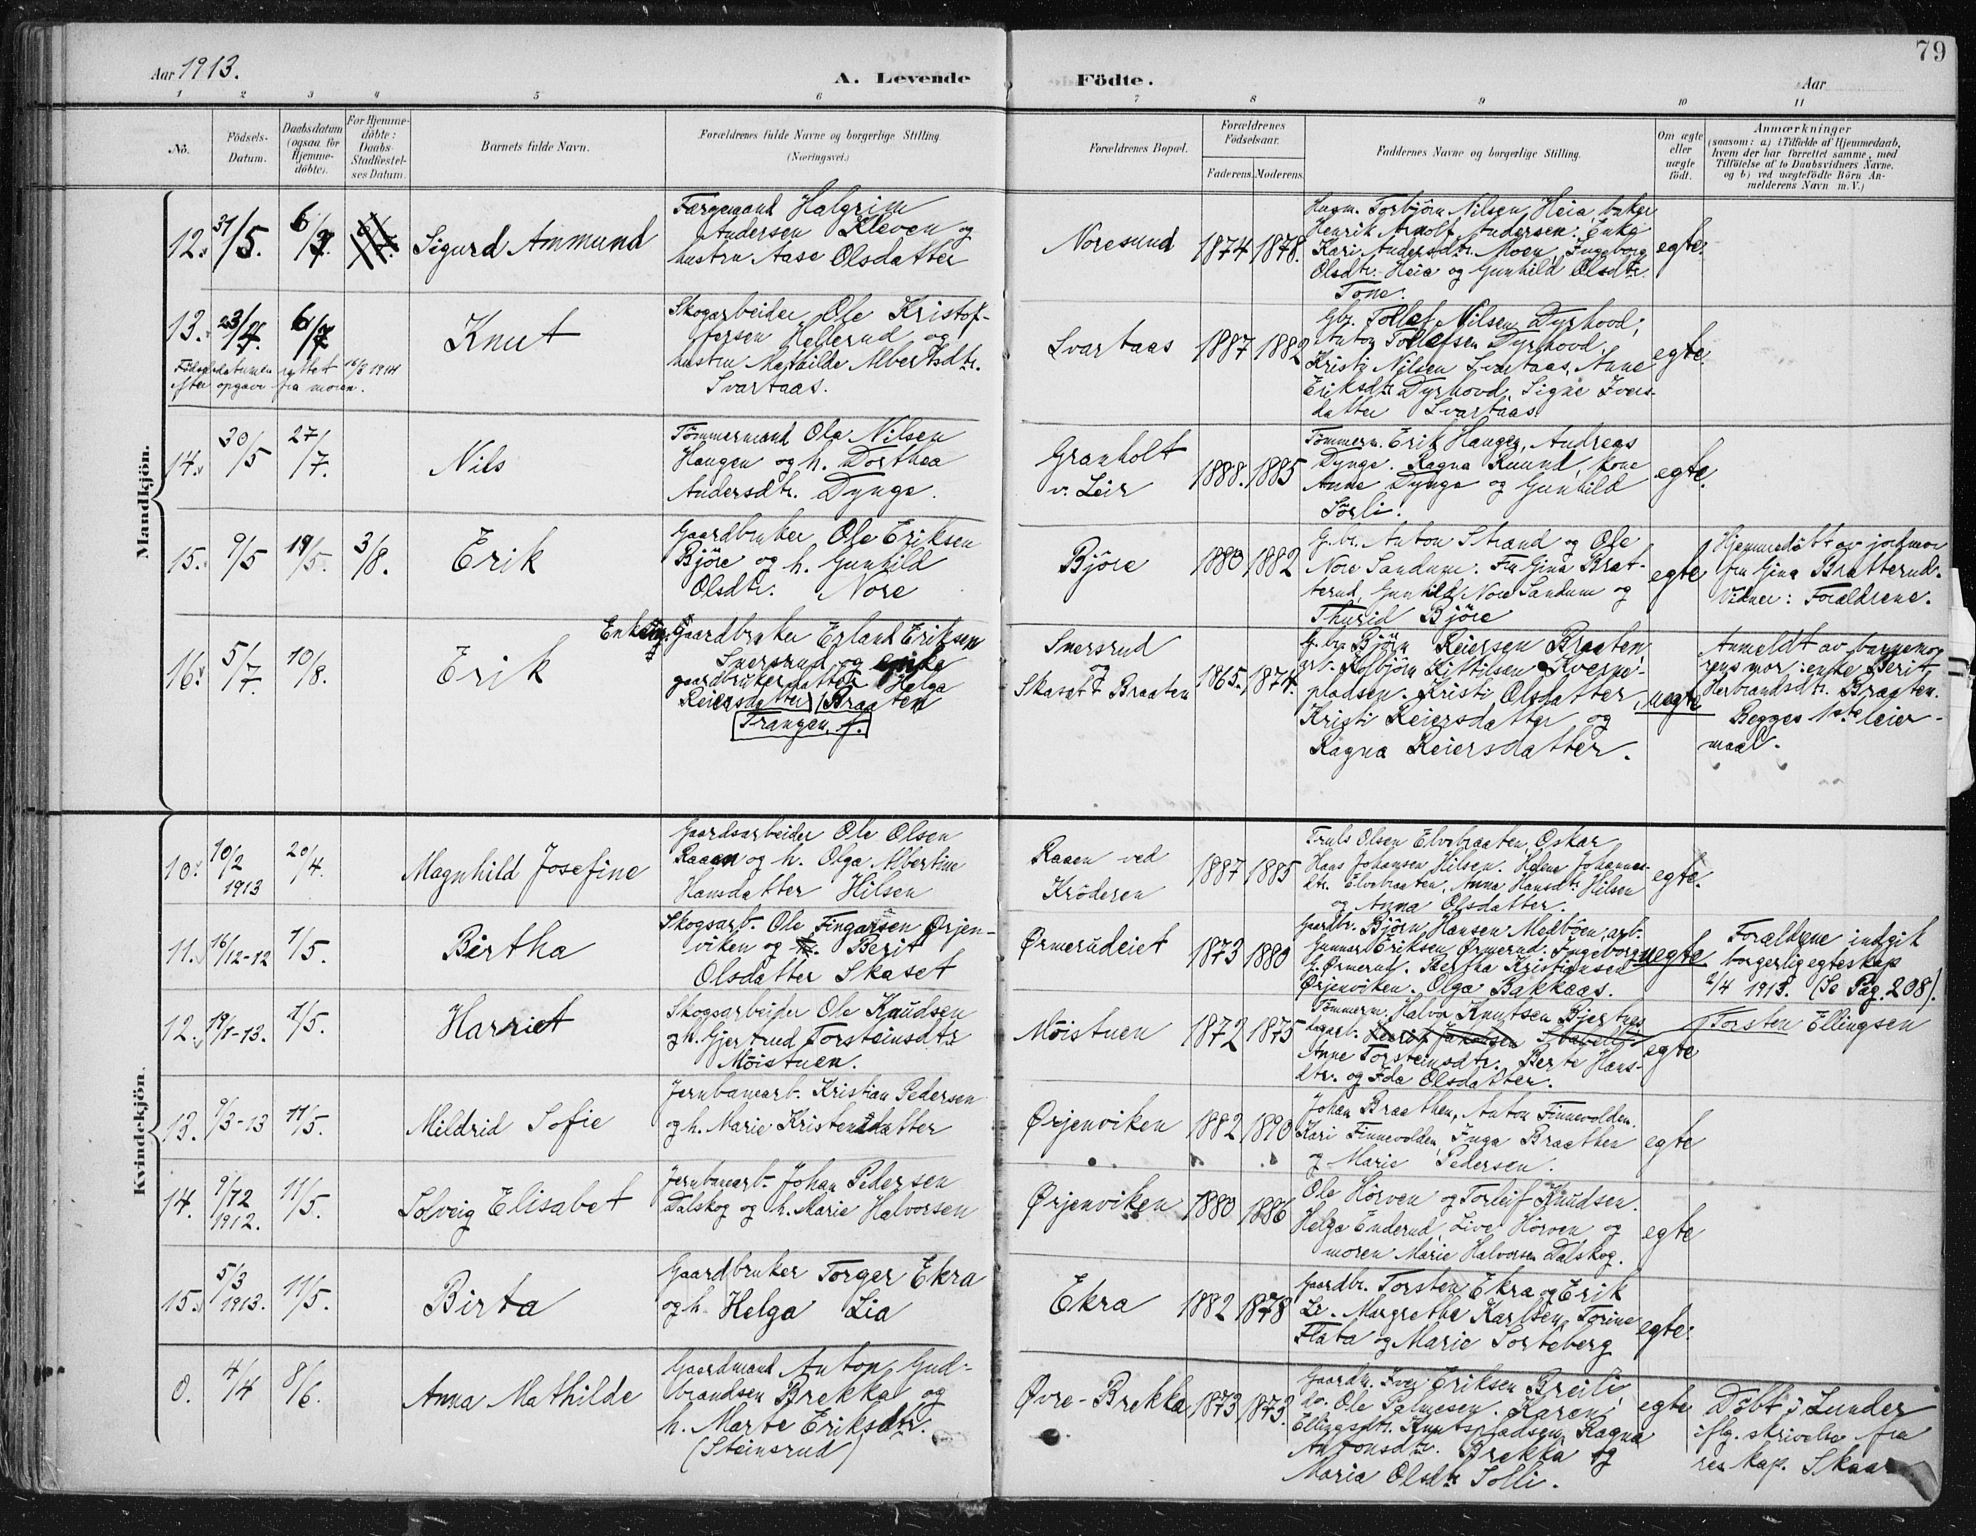 79
Aar 1913.
A. Levende Födte.
Aar
1 2 3 4 5 6 7 8 9 10 11
Nö.
Födsels-
Datum.
Daabsdatum
(ogsaa for
Hjemme-
döbte).
For Hjemme-
döbte:
Daabs-
Stadfæstel-
ses Datum.
Barnets fulde Navn.
Forældrenes fulde Navne og borgerlige Stilling.
(Næringsvei.)
Forældrenes Bopæl.
Forældrenes
Födselsaar.
Faderens.
Moderens.
Faddernes Navne og borgerlige Stilling.
Om ægte
eller
uægte
født.
Anmærkninger
(saasom: a) i Tilfælde af Hjemmedaab,
hvem der har forrettet samme, med
Tilföielse af to Daabsvidners Navne,
og b) ved uægtefödte Börn An-
melderens Navn m. V.)
Mandkjön.
12. 31/5. 6/7. Sigurd Ammund
Færgemand Halgrim
Andersen Kleven og
hustru Aase Olsdatter
Noresund 1874 1878.
Hagm. Torbjörn Nilsen Heia, buker
Henrik Arnolf Andersen. Enke
Kari Andersdtr. Moen, Ingeborg
Olsdtr. Heia og Gunhild Olsdtr.
Tone.
egte.
13. 23/4. 6/7 Knut
Fødselsdatumen rettet 16/6 1914
efter opgave fra moren.
Skogarbeider Ole Kristof-
fersen Hellerud og
hustru Mathilde Albertsdtr.
Svartaas.
Svartaas 1887 1882
Gbr. Tollef Nilsen Dyrhovd,
Anton Tollefsen Dyrhovd,
Kristi Nilsen Svartaas, Anne
Eriksdtr. Dyrhovd, Signe Ivers-
datter Svartaas
egte.
14. 30/5 27/7 Nils
Tömmermand Ole Nilsen
Haugen og h. Dorthea
Andersdtr. Dynge.
Granholt
v. Leir
1888. 1885
Tömmerm. Erik Haugen, Andreas
Dynge. Ragna Ruund, kone
Anne Dynge og Gunhild
Sörli.
egte.
15. 9/5 19/5. 3/8. Erik
Gaardbruker Ole Eriksen
Björe og h. Gunhild
Olsdtr. Nore
Björe 1880 1882
G.br. Anton Strand og Ole
Nore Sandum. Fru Gina Brat-
terud, Gunhild Nore Sandum og
Thurid Björe
egte
Hjemmedöbt av jordmor
fru Gina Bratterud.
Vidner: Forældrene.
16. 5/7. 10/8. Erik
Gaardbruker Erland Eriksen
Snersrud og
gaardbrukerdatter Helga
Reiersdatter Braaten
Trangen f.
Snersrud
og
Skasett Braaten
1865. 1874.
G.br. Björn Reiersen Braaten,
arb. Kolbjörn Kittilsen Kverne-
pladsen. Kristi Olsdatter,
Kristi Reiersdatter og
Ragna Reiersdatter.
uegte
Anmeldt av barnemo-
rens mor: enke Berit
Herbrandsdtr. Braaten.
Begges 1ste leier-
maal.
Kvindekjön.
10. 10/2 1913 20/4. Magnhild Josefine
Gaardsarbeider Ole Olsen
Raaen og h. Olga Albertine
Hansdatter Hilsen
Raaen ved
Kröderen
1887 1885
Truls Olsen Elvebraaten, Oskar
Hans Johansen Hilsen. Helene Johannes-
dtr. Elvebraaten, Anna Hansdtr. Hilsen
og Anna Olsdatter.
egte.
11. 16/12-12 1/5. Birtha
Skogsarb. Ole Fingarsen Ørjen-
viken og Berit
Olsdatter Skaset
Ørmerudeiet 1873 1880
Gaardbr. Björn Hansen Medböen, arb.
Gunnar Eriksen Ørmerud. Ingeborg
G. Ørmerud. Bertha Kristiansen
Ørjenviken. Olga Bakkaas.
uegte
Forældrene indgik
borgerlig egteskap
2/4 1913. (Se Pag. 208).
12. 19/1-13. 1/5. Harriet
Skogsarbeider Ole Knudsen
og h. Gjertrud Torsteinsdtr.
Möistuen.
Möistuen 1872 1875
Tömmerm. Halvor Knutsen Bjertnes
Anne Torsteinsdtr. Berte Hans-
dtr. og Ida Olsdatter.
egte
Torsten Ellingsen
13. 9/3-13 11/5. Mildrid Sofie
Jernbanearb. Kristian Pedersen
og h. Marie Kristensdatter
Ørjenviken 1882 1890
Johan Braathen, Anton Finnevolden.
Kari Finnevolden, Inga Braathen
og Marie Pedersen.
egte
14. 9/12 1912. 11/5. Solveig Elisabet
Jernbanearb. Johan Pedersen
Dalskog og h. Marie Halvorsen
Ørjenviken 1880 1886
Ole Hörven og Torleif Knudsen.
Helga Enderud, Live Hörven og
moren Marie Halvorsen Dalskog.
egte
15. 5/3 1913. 11/5. Birta
Gaardbruker Torger Ekra
og h. Helga Lia
Ekra 1882 1878
Gaardbr. Torsten Ekra og Erik
Margrethe Karlsen, Torine
Flata og Marie Sorteberg
egte.
0. 4/4 8/6. Anna Mathilde
Gaardmand Anton Gud-
brandsen Brekka og
h. Marte Eriksdtr.
(Steinsrud)
Øvre-Brekka 1873 1873.
Gaardm. Iver Eriksen Breili,
do. Ole Palmesen. Karen
Ellingsdtr. Knutspladsen, Ragna
Antonsdtr. Brekka og
Maria Olsdtr. Solli.
egte
Döbt i Lunder
iflg. skrivelse fra
res. kap. Skaar